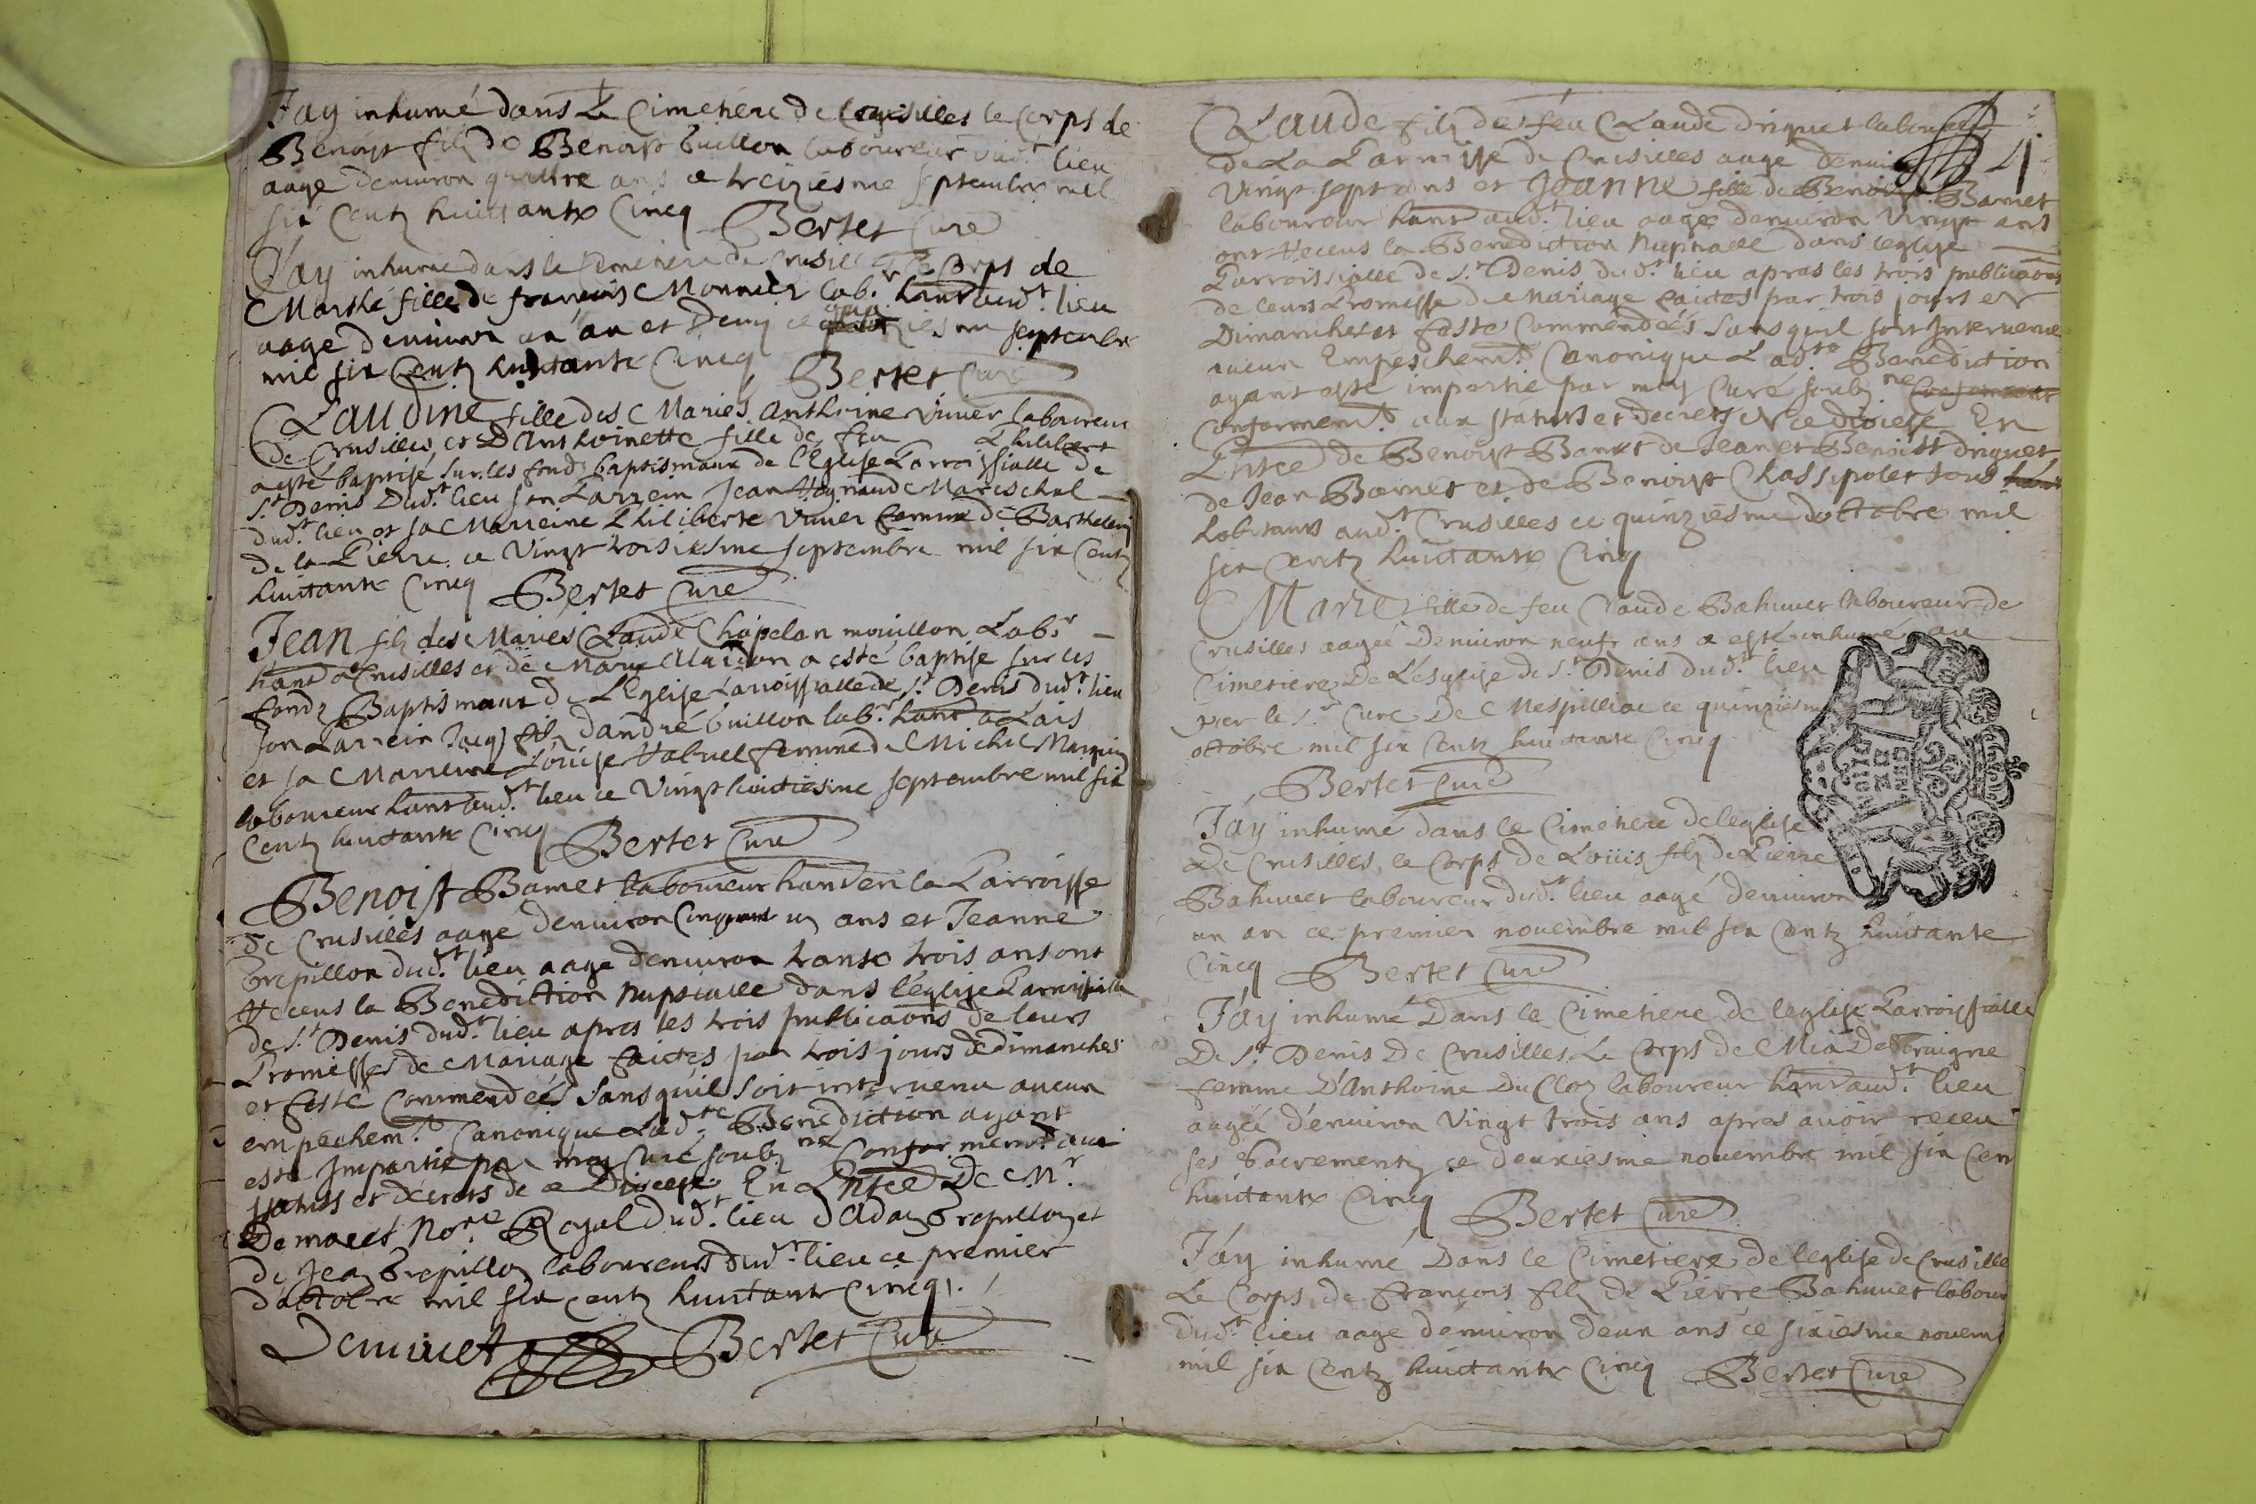 Jay inhumé dans le Cimetiere de Crusilles le Corps de
Benoist filz de Benoist Guillon laboureur dudt lieu
aage denuiron quattre ans ce treiziesme septembre mil
six Centz huictante Cincq Bertet Curé
J'ay inhumé dans le Cimetiere de Crusilles le Corps de
Marthe fille de françois Monnier labr hant audt lieu
aage denuiron un an et Demy ce septembre
mil six Centz huictante Cincq Bertet Curé
Claudine fille des Mariés Anthoine Vivier laboureur
de Crusilles et D'Anthoinette fille de feu Philibert
a esté baptisé sur les fondz baptismaux de l'Eglise Parroissialle de
St Denis Dudt lieu son Parrein Jean Reynaud Mareschal
dudt lieu et sa Marreine Philiberte Vivier femme de Barthelemy
de la Pierre ce Vingt troisiesme septembre mil six Centz
huictante Cincq Bertet Curé
Jean filz des Mariés Claude Chapelan mouillon Labr
hant a Crusilles et de Marie a esté baptisé sur les
fondz Baptismaux de L'Eglise Parroissialle de St Denis dudt lieu
son Parrein Jacq filz d'andré Guillon labr hant a Lais
et sa Marreine Louise Rabuel femme de Michel Marguin
laboureur hant audt lieu ce Vingt huictiesme septembre mil six
Centz huictante Cincq Bertet Curé
Benoist Bamet laboureur hant en la Parroisse
de Crusilles aagé denuiron Cinquante un ans et Jeanne
Grepillon dudt lieu aage denuiron trante trois ans ont
Receus la Benediction Nupsialle dans l'église Parroissialle
de St Denis dudt lieu apres les trois publicaons de leurs
Promesses de Mariage faictes par trois jours de dimanches
et feste Commendées Sans qu'il soit intervenu aucun
empechemt Canonique Ladte Benediction ayant
esté Impartie par moy Curé soubz né Conformemt aux
statuts et decrets de ce Diocese En Pntce De Mr
Demouet Nore Royal Dudt lieu d'Aday Grepillon et
de Jean Grepillon laboureurs dudt lieu ce premier
d'octobre mil six centz huictante Cincq.
Bertet Curé
Claude filz de feu Claude driguet laboureur
de La Parroisse de Crusilles aage denuiron
Vingt sept ans et Jeanne fille de Benoist Bamet
laboureur hant audt lieu aage denuiron Vingt ans
ont Receus la Benediction Nuptialle dans leglise
Parroissialle de St Denis dudt lieu apres les trois publicaons
de leurs Promesse de Mariage faictes par trois jours et
Dimanches et feste Commendées Sans quil soit Intervenu
aucun Empeschemt Canonique Ladte Benediction
ayant esté impartie par moy Curé soubz né
Conformemt aux statuts et decrets de ce diocese En
Pntce de Benoist Bamet de Jean et Benoist driguet
de Jean Bamet et de Benoist Chassipolet tous
habitans audt Crusilles ce quinziesme doctobre mil
six Centz huictante Cincq
Marie fille de feu Claude Bahuuet laboureur de
Crusilles aagée Denuiron neufz ans a esté inhumée au
Cimetiere De L'esglise de St Denis dudt lieu
par le Sr Curé De Mespilliac ce quinziesme
octobre mil six Centz huictante Cincq
Bertet Curé
J'ay inhumé dans le Cimetiere de leglise
De Crusilles le Corps de Loüis filz de Pierre
Bahuuet laboureur dudt lieu aagé denuiron
un an ce premier nouembre mil six Centz huictante
Cincq Bertet Curé
J'ay inhumé Dans le Cimetiere de leglise Parroissialle
De St Denis De Crusilles Le Corps de Mia De Braigne
femme D'anthoine Du Cloz laboureur hant audt lieu
aagée d'enuiron Vingt trois ans apres auoir receu
ses Sacrementz ce deuxiesme nouembre mil six Cen
huictante Cincq Bertet Curé
J'ay inhumé Dans le Cimetiere de leglise de Crusille
Le Corps de françois filz de Pierre Bahuuet labour
dudt lieu aage denuiron deux ans ce sixiesme nouem
mil six Centz huictante Cincq Bertet Curé